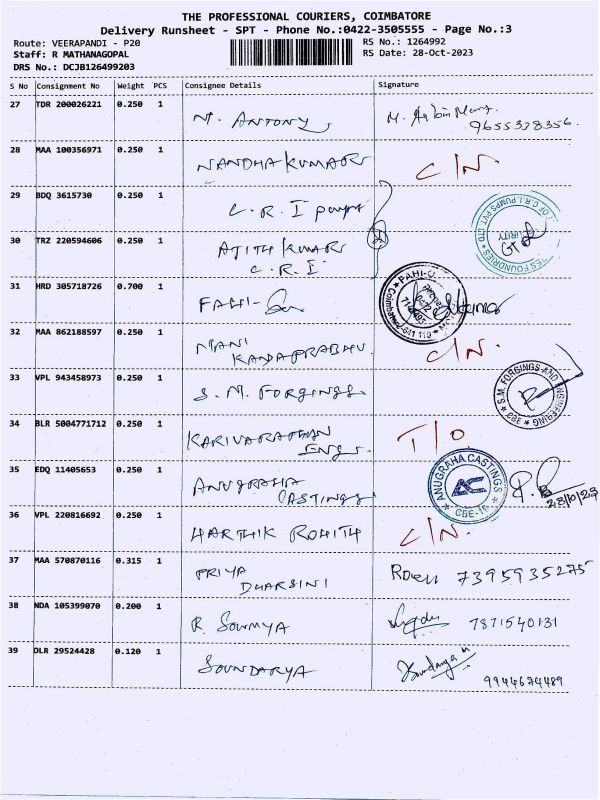 THE PROFESSIONAL COURIERS, COIMBATORE
Delivery Runsheet - SPT - Phone No.:0422-3505555 - Page No.:3
Route: VEERAPANDI - P20
RS No.: 1264992
Staff: R MATHANAGOPAL
RS Date: 28-Oct-2023
DRS No.: DCJB126499203
S No Consignment No Weight PCS Consignee Details Signature
27 TDR 200026221 0.250 1 M. ANTONY
9655338356
28 MAA 100356971 0.250 1 NANDHA KUMAR C/N.
29 BDQ 3615730 0.250 1 C. R. I pumps
30 TRZ 220594606 0.250 1 AJITH KUMAR
C. R. I
31 HRD 305718726 0.700 1 FAHI-
32 MAA 862188597 0.250 1 MANI
KANDAPRABHU. C/N.
33 VPL 943458973 0.250 1 S. M. FORGINGS
S.M. FORGINGS AND ENGINEERING
CBE
34 BLR 5004771712 0.250 1 KARIVARATHAN
ENGS. T/O
35 EDQ 11405653 0.250 1 ANUGRAHA
CASTINGS
ANUGRAHA CASTINGS
AC
CBE-16
28/10/23
36 VPL 220816692 0.250 1 HARTHIK ROHITH C/N.
37 MAA 570870116 0.315 1 PRIYA
DHARSINI
7395935275
38 NDA 105399070 0.200 1 R. SOWMYA 7871540131
39 OLR 29524428 0.120 1 SOUNDARYA Soundarya
9944674489